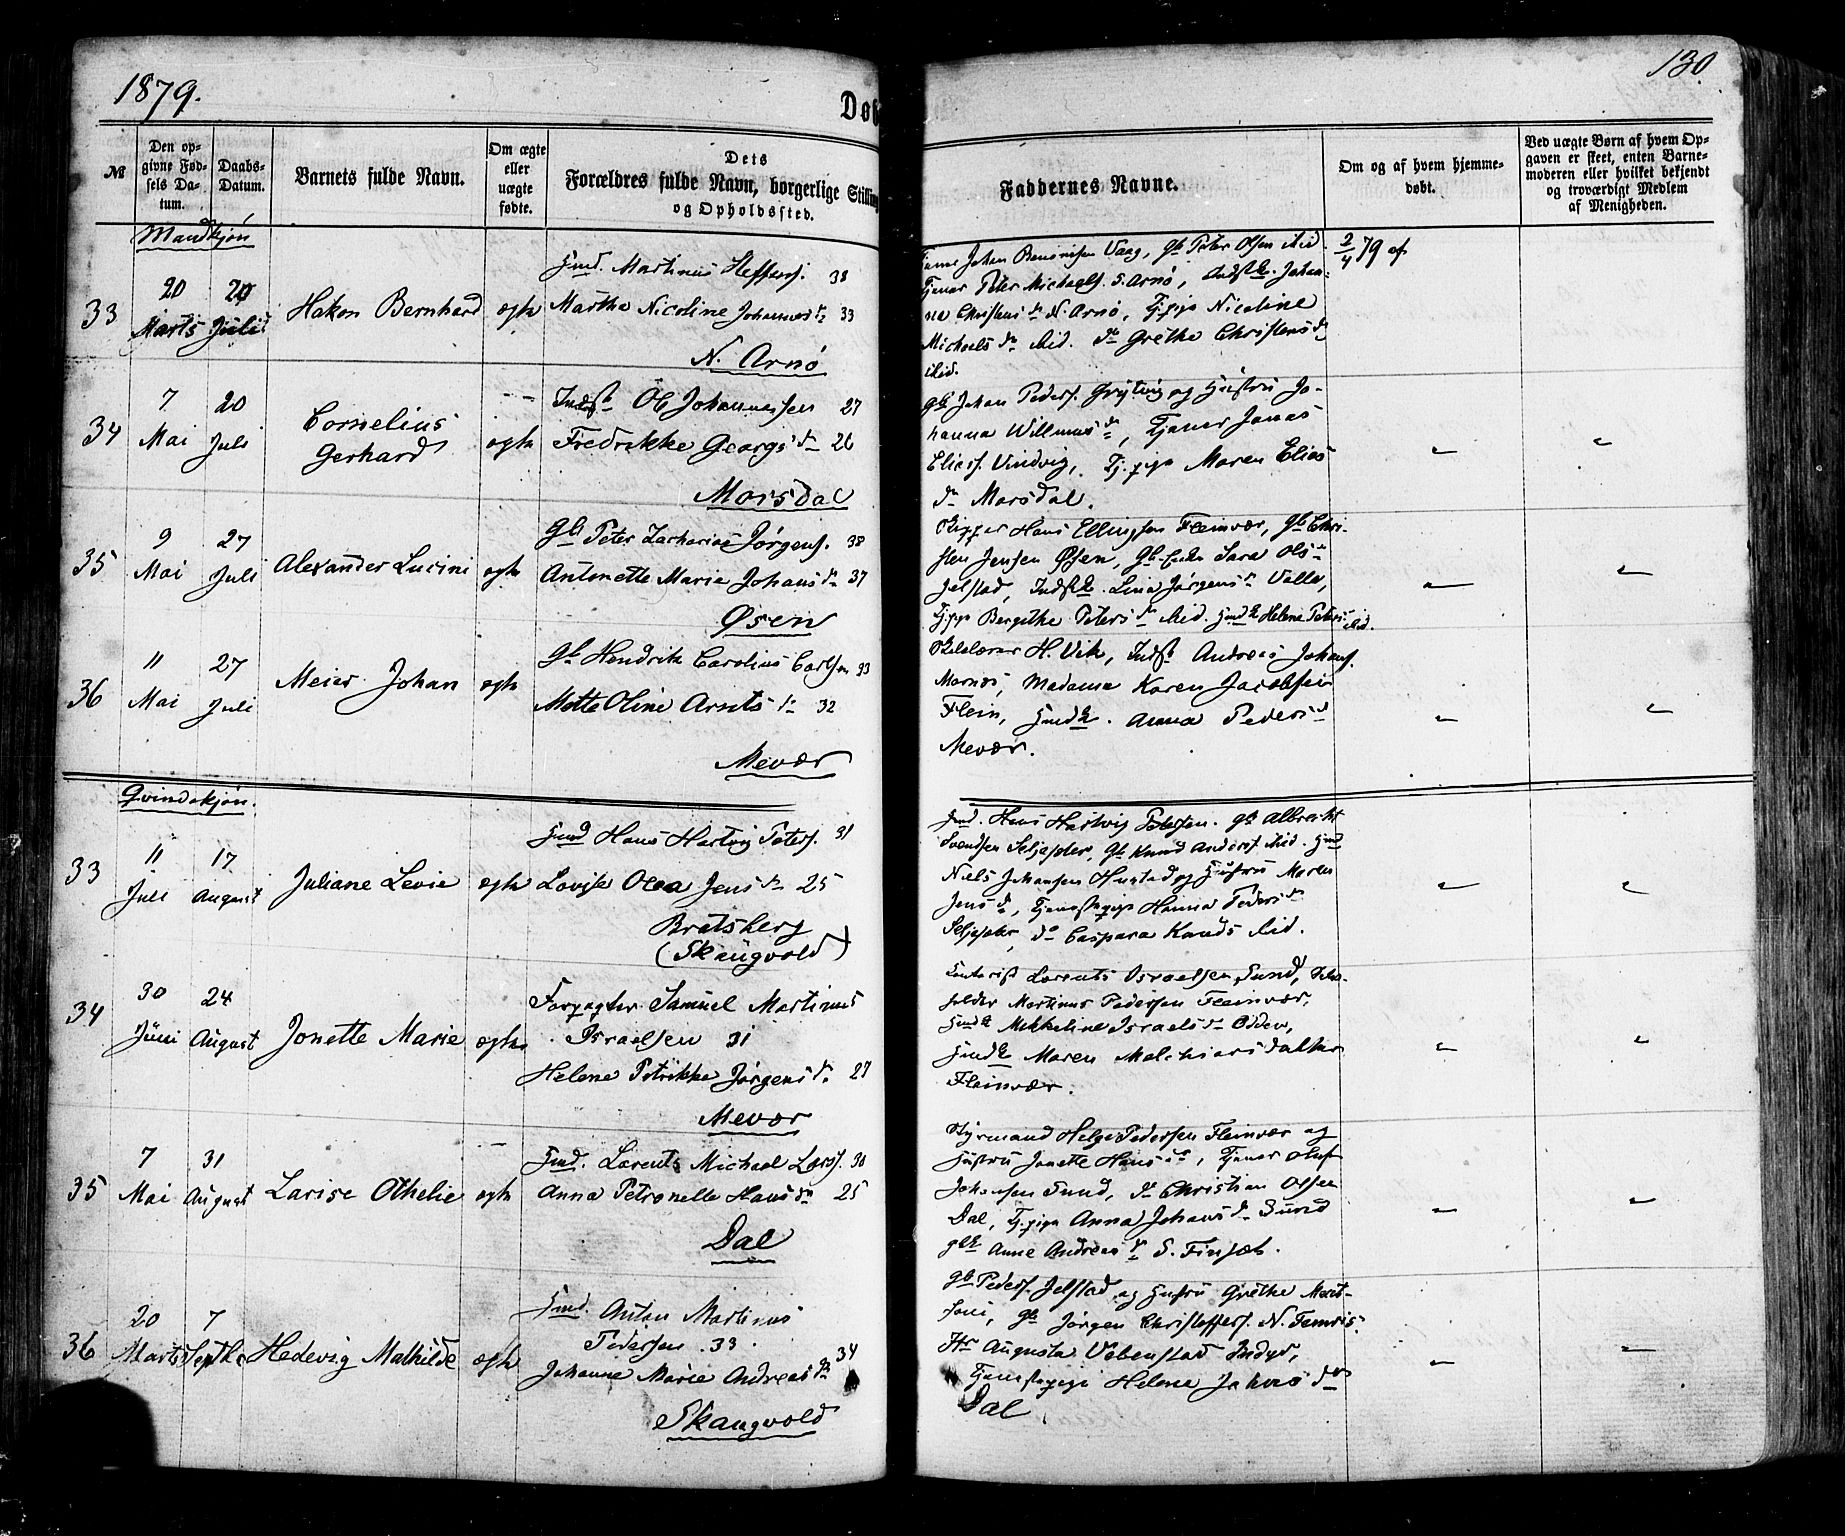 1879.
130.
Døb
№
Den opgivne Fødsels Datum.
Daabs-Datum.
Barnets fulde Navn.
Om ægte eller uægte fødte.
Dets
Forældres fulde Navn, borgerlige Stilling
og Opholdssted.
Faddernes Navne.
Om og af hvem hjemmedøbt.
Ved uægte Børn af hvem Opgaven er skeet, enten Barnemoderen eller hvilket bekjendt og troværdigt Medlem af Menigheden.
Mandkjøn
33
20 Marts
20 Juli
Hakon Bernhard
ægte
Martinus Steffens. 38
Martha Nicoline Johannesdr 33
N. Arnø
Johan Benonisen Vaag, Gb Peter Olsen ibid.
Tjener Peter Michaels. S. Arnø, Indstk. Johan-
na Christensdr N. Arnø, Tjpige Nicoline
Michaelsdr ibid. do Grethe Christensdr
ibid.
2/4 79 af
34
7 Mai
20 Juli
Cornelius
Gerhard
ægte
Indst Ole Johannessen 27
Fredrikke Georgsdr 26
Morsdal
Gb Johan Peders. Grytvig og Hustru Jo-
hanna Willumsdr, Tjener Jonas
Elias. Vindvig, Tj.pige Maren Elias
dr Morsdal.
35
9 Mai
27 Juli
Alexander Lucini
ægte
Gb Peter Zacharias Jørgens. 38
Antonette Marie Johansdr 37
Øsen
Skipper Hans Ellingsen Fleinvær, Gb Chri-
sten Jensen Øsen, Gb. Enke Sara Olsdr
Jelstad, Indstk. Lina Jørgensdr Valle,
Tjpige Bergithe Petersdr ibid. Helene Peters ibid.
36
11 Mai
27 Juli
Meier Johan
ægte
Gb Hendrik Carolius Carlsen 33
Mette Oline Arntsdr 32
Mevær
Skolelærer H. Vik, Indst Andreas Johans.
Marnæs, Madame Karen Jacobsen
Flein, Anna Pedersdr
Mevær.
Qvindekjøn.
33
11 Juli
17 August
Juliane Levie
ægte
Hans Hartvig Peters. 31
Lovise Olea Jensdr 25
Bratsberg
(Skaugvold)
Hans Hartvig Petersen. Gb Albrecht
Svendsen Seljeseter, Gb Knud Anders. ibid.
Niels Johansen Hustad og Hustru Maren
Jensdr, Tjenestepige Hanna Pedersdr
Seljeseter, do Caspara Knuds ibid.
34
30 Juni
24 August
Jonette Marie
ægte
Forpagter Samuel Martinus
Israelsen 31
Helene Petrikke Jørgensdr 27
Mevær
Lorents Israelsen Sund,
Martinus Pedersen Fleinvær,
Mekkeline Israelsdr Odden,
Maren Malchiorsdatter
Fleinvær.
35
7 Mai
31 August
Larise Othelie
ægte
Lorents Michael Lars. 30
Anna Petronelle Hansdr 25
Dal
Styrmand Helge Pedersen Fleinvær og
Hustru Jonette Hansdr, Tjener Oluf
Johansen Sund, do Christian Olsen
Dal, Tj.pige Anna Johansdr Sund
Anne Andreasdr S. Finsæt.
36
20 Marts
7 Septbr
Hedevig Mathilde
ægte
Anton Martinus
Pedersen 33.
Johanne Marie Andreasdr 34
Skaugvold
Gb Peders. Jelstad og Hustru Grethe
Gb Jørgen Christoffers. N.
Augusta Vebenstad Indyr,
Tjenestepige Helene Jakobsdr
Dal.